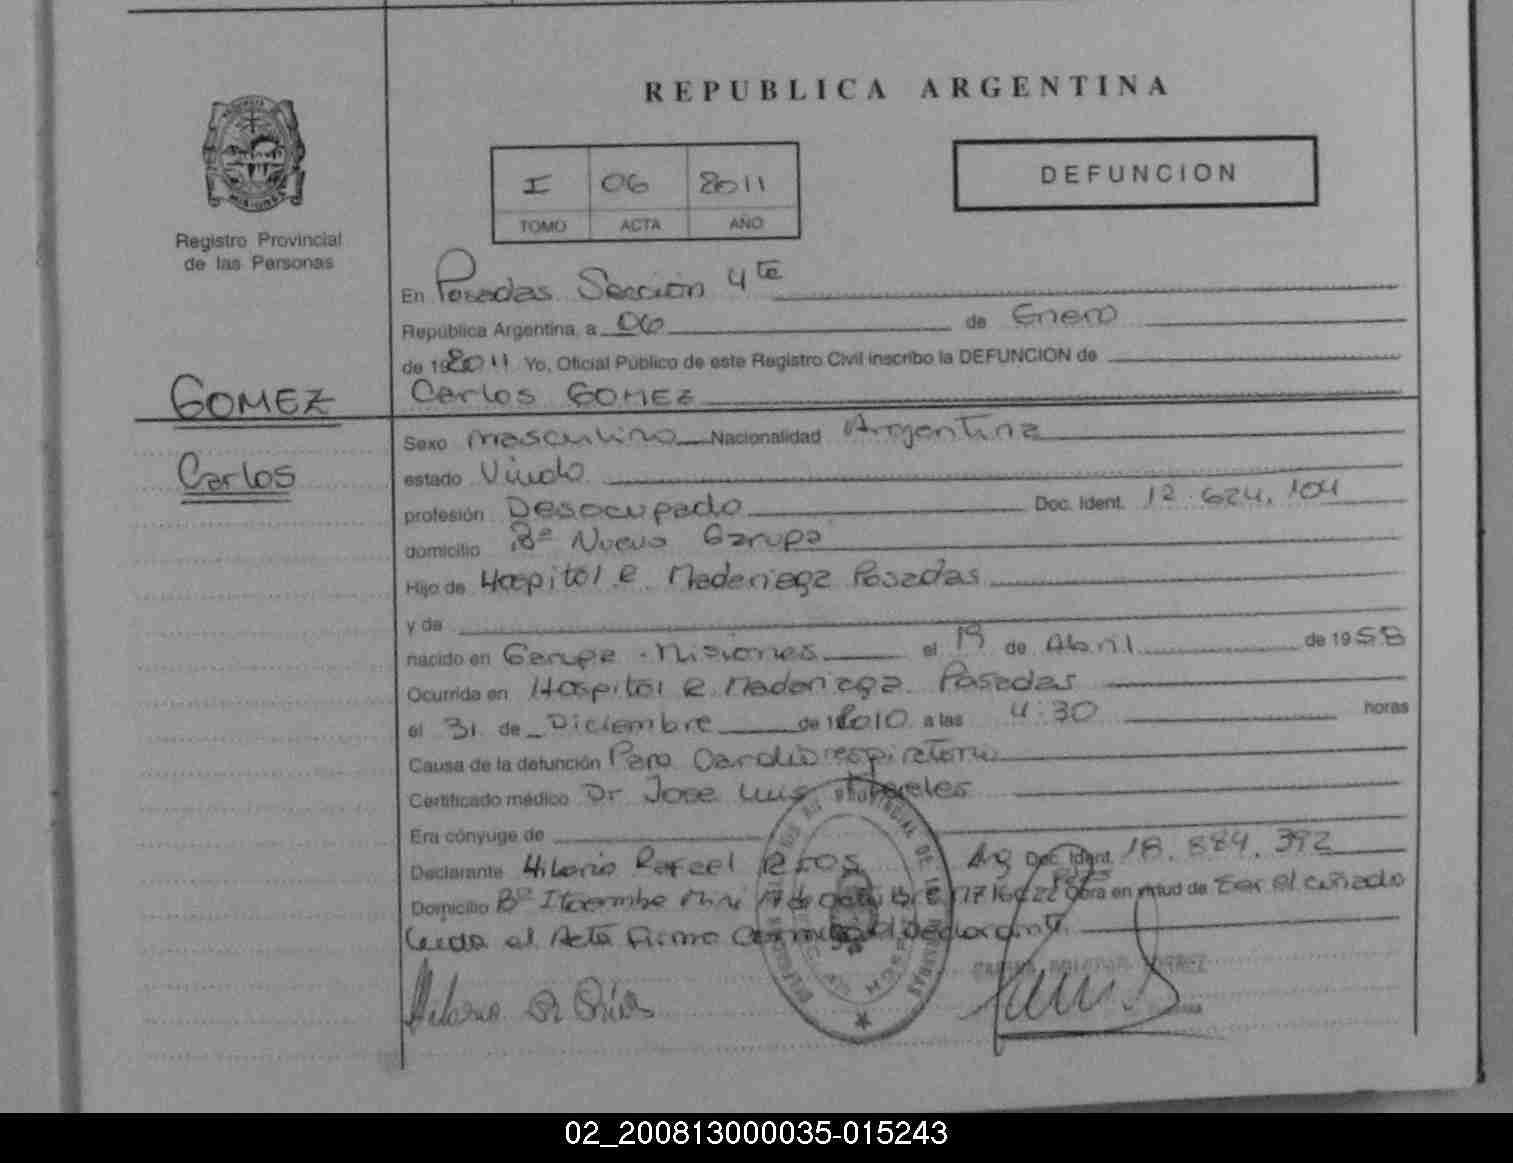 REPUBLICA ARGENTINA
I 06 2011
TOMO ACTA AÑO
DEFUNCION
Registro Provincial
de las Personas
GOMEZ
Carlos
En Posadas Sección 4ta
República Argentina, a 06 de Enero
de 192011 Yo, Oficial Público de este Registro Civil inscribo la DEFUNCION de
Carlos GOMEZ
Sexo masculino Nacionalidad Argentina
estado Viudo
profesión Desocupado Doc. Ident. 12.624.104
domicilio Bº Nuevo Garupa
Hijo de Hospital R. Maderiaga Posadas
y de
nacido en Garupa - Misiones el 19 de Abril de 1958
Ocurrida en Hospital R. Maderiaga Posadas
el 31 de Diciembre de 2010 a las 4:30 horas
Causa de la defunción Paro Cardio respiratorio
Certificado médico Dr Jose Luis
Era cónyuge de
Declarante Hilario Rafael RIOS Arg Doc. Ident. 18.884.392
Domicilio Bº Itaembe Mini Obra en virtud de Ser el cuñado
Leida el Acta Firma Conmigo el Declarante
Hilario R Ríos
02_200813000035-015243